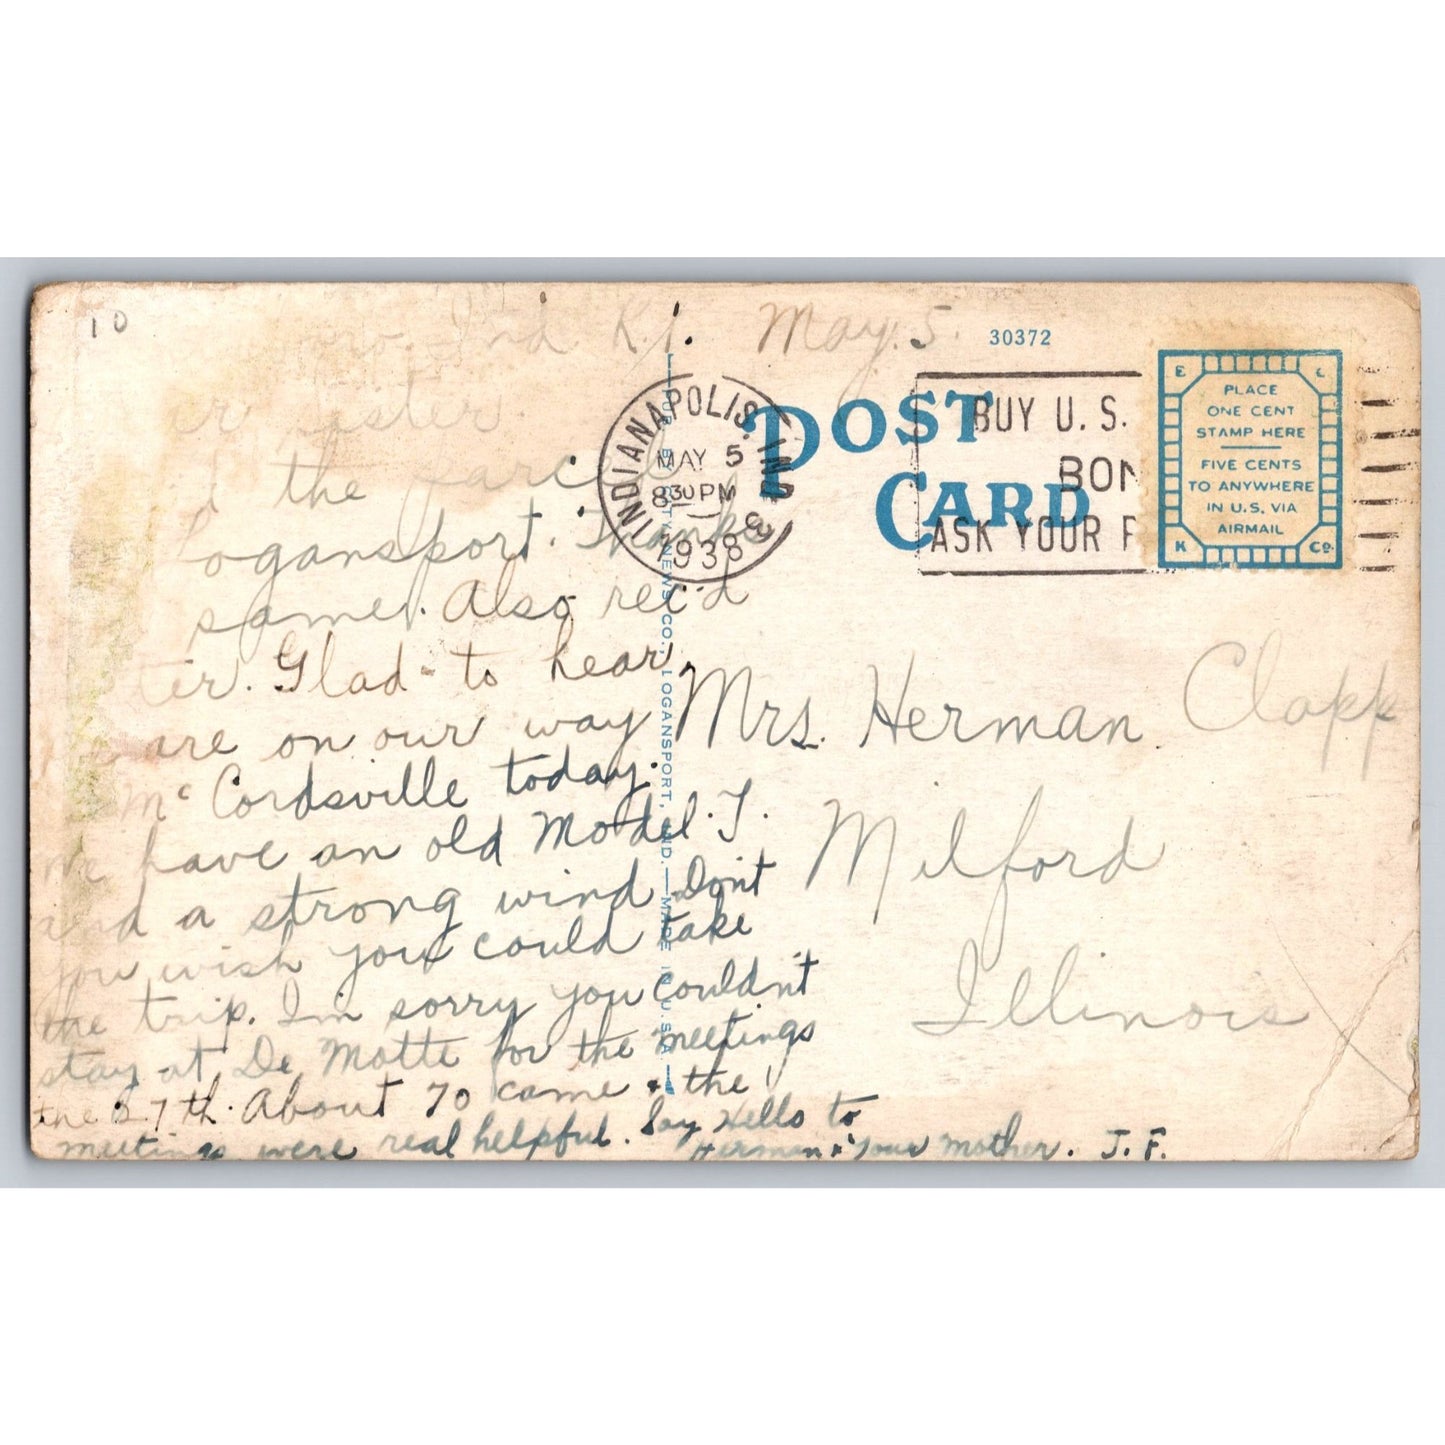 10
Ind. R.1. May 5.
30372
POST CARD
INDIANAPOLIS. IND.
MAY 5
8 30 PM
1938
BUY U. S.
BON
ASK YOUR P
E C
PLACE
ONE CENT
STAMP HERE
FIVE CENTS
TO ANYWHERE
IN U.S. VIA
AIRMAIL
K Co.
d the parcel
Logansport. Thanks
same. Also rec'd
ter. Glad to hear
are on our way
Mc Cordsville today.
We have an old Model. T.
and a strong wind Don't
you wish you could take
the trip. I'm sorry you couldn't
stay at De Motte for the meetings
the 27th. About 70 came & the
meetings were real helpful. Say Hello to
Herman & Your Mother. J. F.
NEWS CO., LOGANSPORT, IND. — MADE IN U. S. A.
Mrs. Herman Clapp
Milford
Illinois